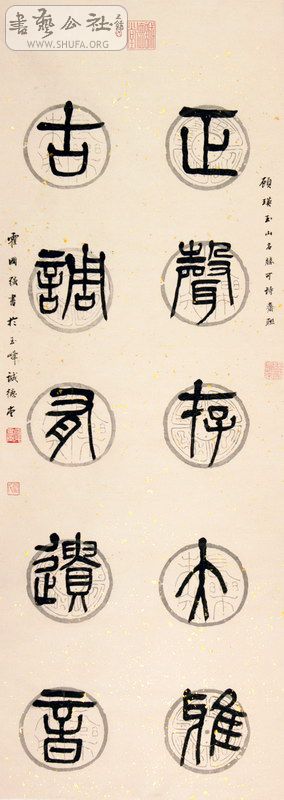 書藝公社
WWW.SHUFA.ORG
顧瑛玉山名勝可詩齋聯
正聲存大雅
古調有遺音
霍國強書於玉峰誠德堂